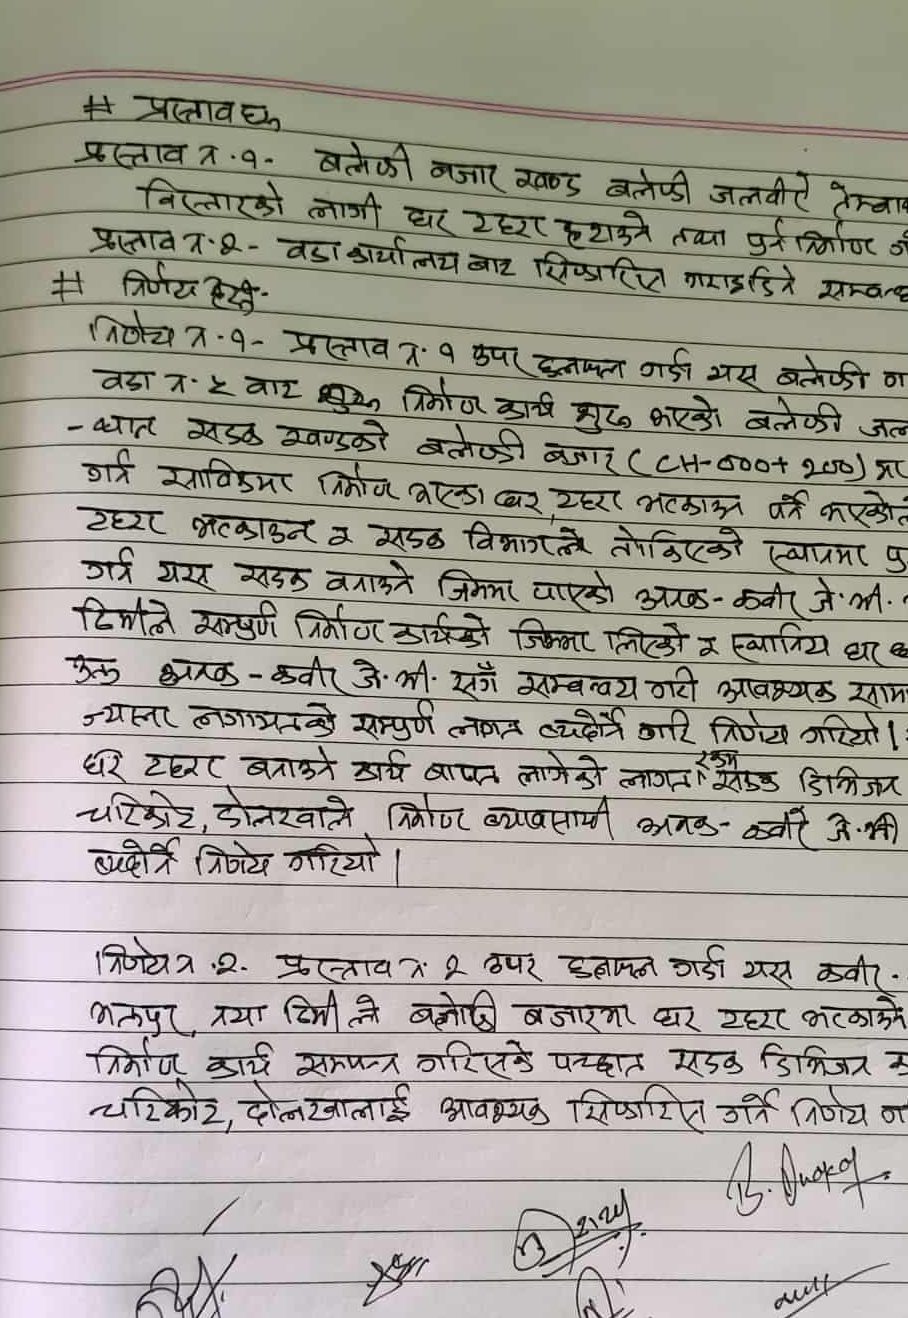 # प्रस्तावहरु
प्रस्ताव नं.१- बलेफी बजार खण्ड बलेफी जलवीरे
विस्तारको लागी घर टहरा हटाउने तथा पुर्न निर्माण
प्रस्ताव नं.२- वडा कार्यालय बाट सिफारिस गराइदिने सम्बन्ध
# निर्णय हरु-
निर्णय नं.१- प्रस्ताव नं. १ उपर छलफल गर्दा यस बलेफी गा
वडा नं. ५ बाट शुरु निर्माण कार्य शुरु भएको बलेफी जल
सडक खण्डको बलेफी बजार (CH-000+200)
गर्न साविकमा निर्माण भएका घर, टहरा भत्काउन पर्ने भएकोले
टहरा भत्काउन र सडक विभागले तोकिएको स्थानमा पु
गर्न यस सडक बनाउने जिम्मा पाएको कवीर जे.भी.
टिमीले सम्पुर्ण निर्माण कार्यको जिम्मा लिएको र स्थानिय घर
उक्त कवीर जे.भी. सँग सम्वन्वय गरी आवश्यक साम
ज्याला लगाएतको सम्पुर्ण लागत व्यहोर्ने गरि निर्णय गरियो।
घर टहरा बनाउने कार्य बापत लागेको लागत रकम सडक डिभिजन
चरिकोट, दोलखाले निर्माण व्यावसायी कवीर जे.भी
व्यहोर्ने निर्णय गरियो।
निर्णय नं.२. प्रस्ताव नं. २ उपर छलफल गर्दा यस कवीर.
तथा टिमी ले बलेफी बजारमा घर टहरा भत्काउने
निर्माण कार्य सम्पन्न गरिसके पश्चात सडक डिभिजन का
चरिकोट, दोलखालाई आवश्यक सिफारिस गर्ने निर्णय ग